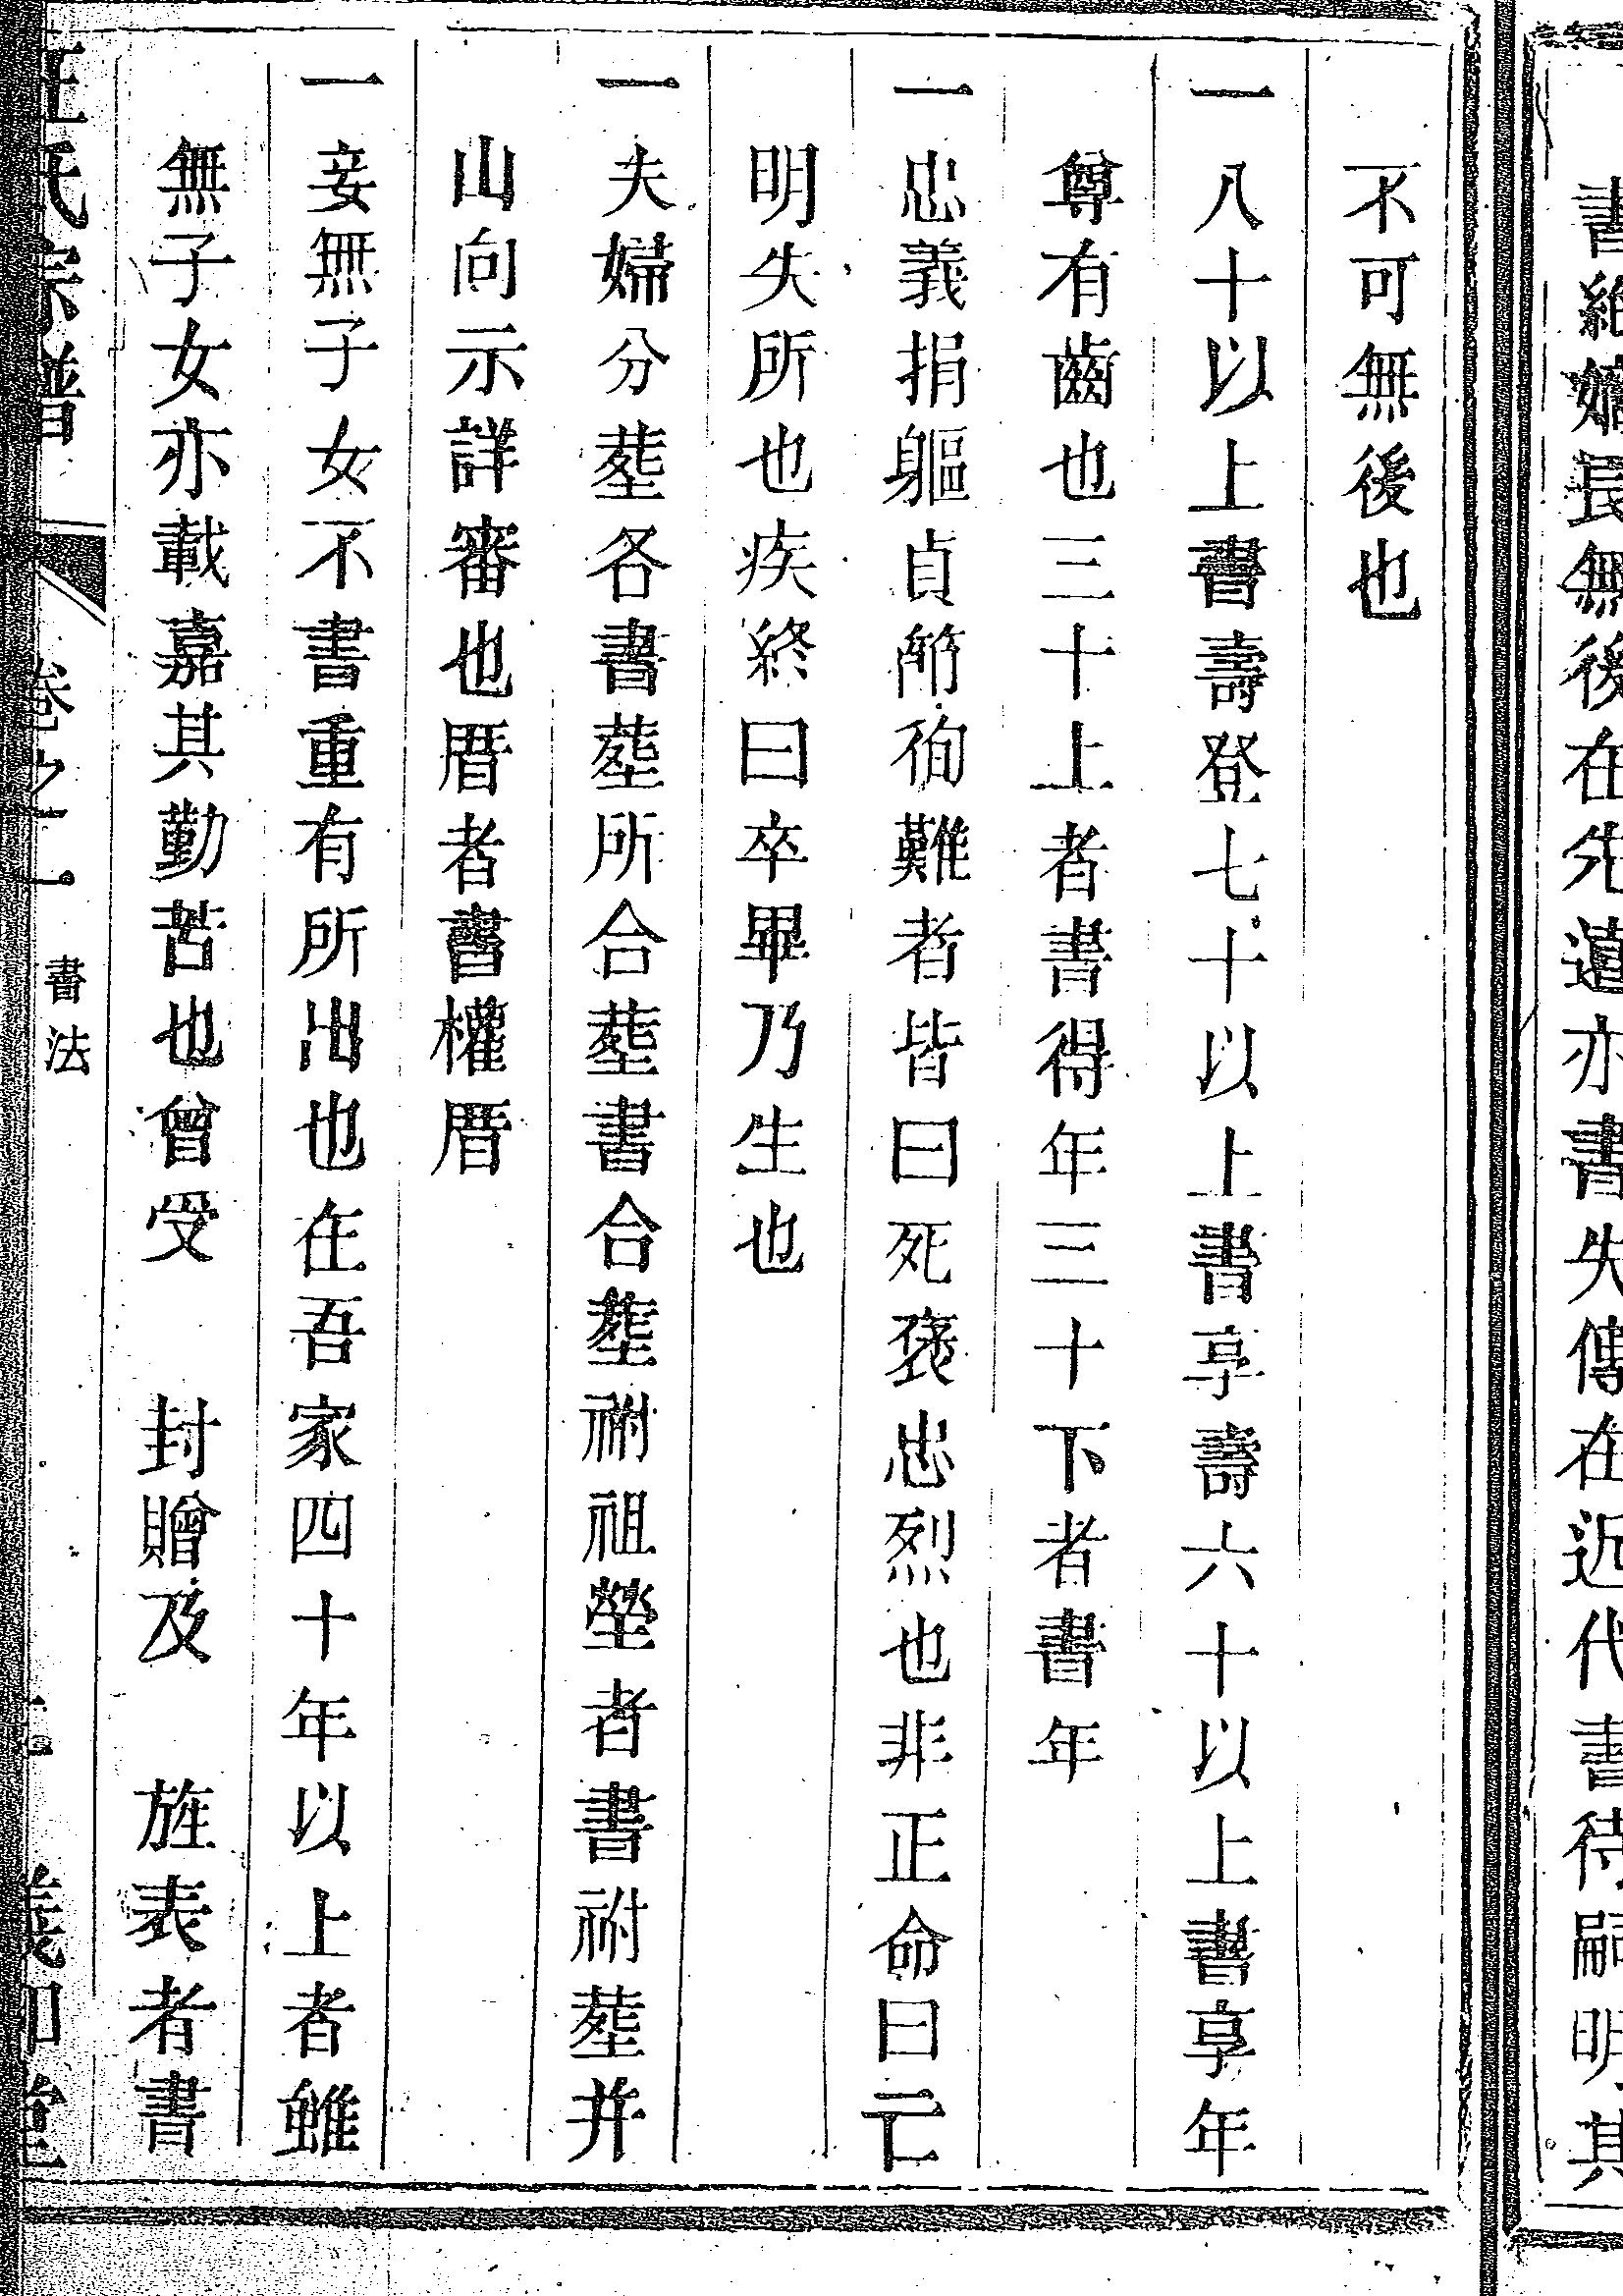 書絶嫡長無後在先遠亦書失傳在近代書待嗣明其
不可無後也
一八十以上書壽登七十以上書享壽六十以上書享年
尊有齒也三十上者書得年三十下者書年
一忠義捐軀貞節徇難者皆曰死褒忠烈也非正命曰亡
明失所也疾終曰卒畢乃生也
一夫婦分塟各書塟所合塟書合塟祔祖塋者書祔塟并
山向示詳審也厝者書權厝
一妾無子女不書重有所出也在吾家四十年以上者雖
無子女亦載嘉其勤苦也曾受 封贈及 旌表者書
氏宗譜 卷之一 書法